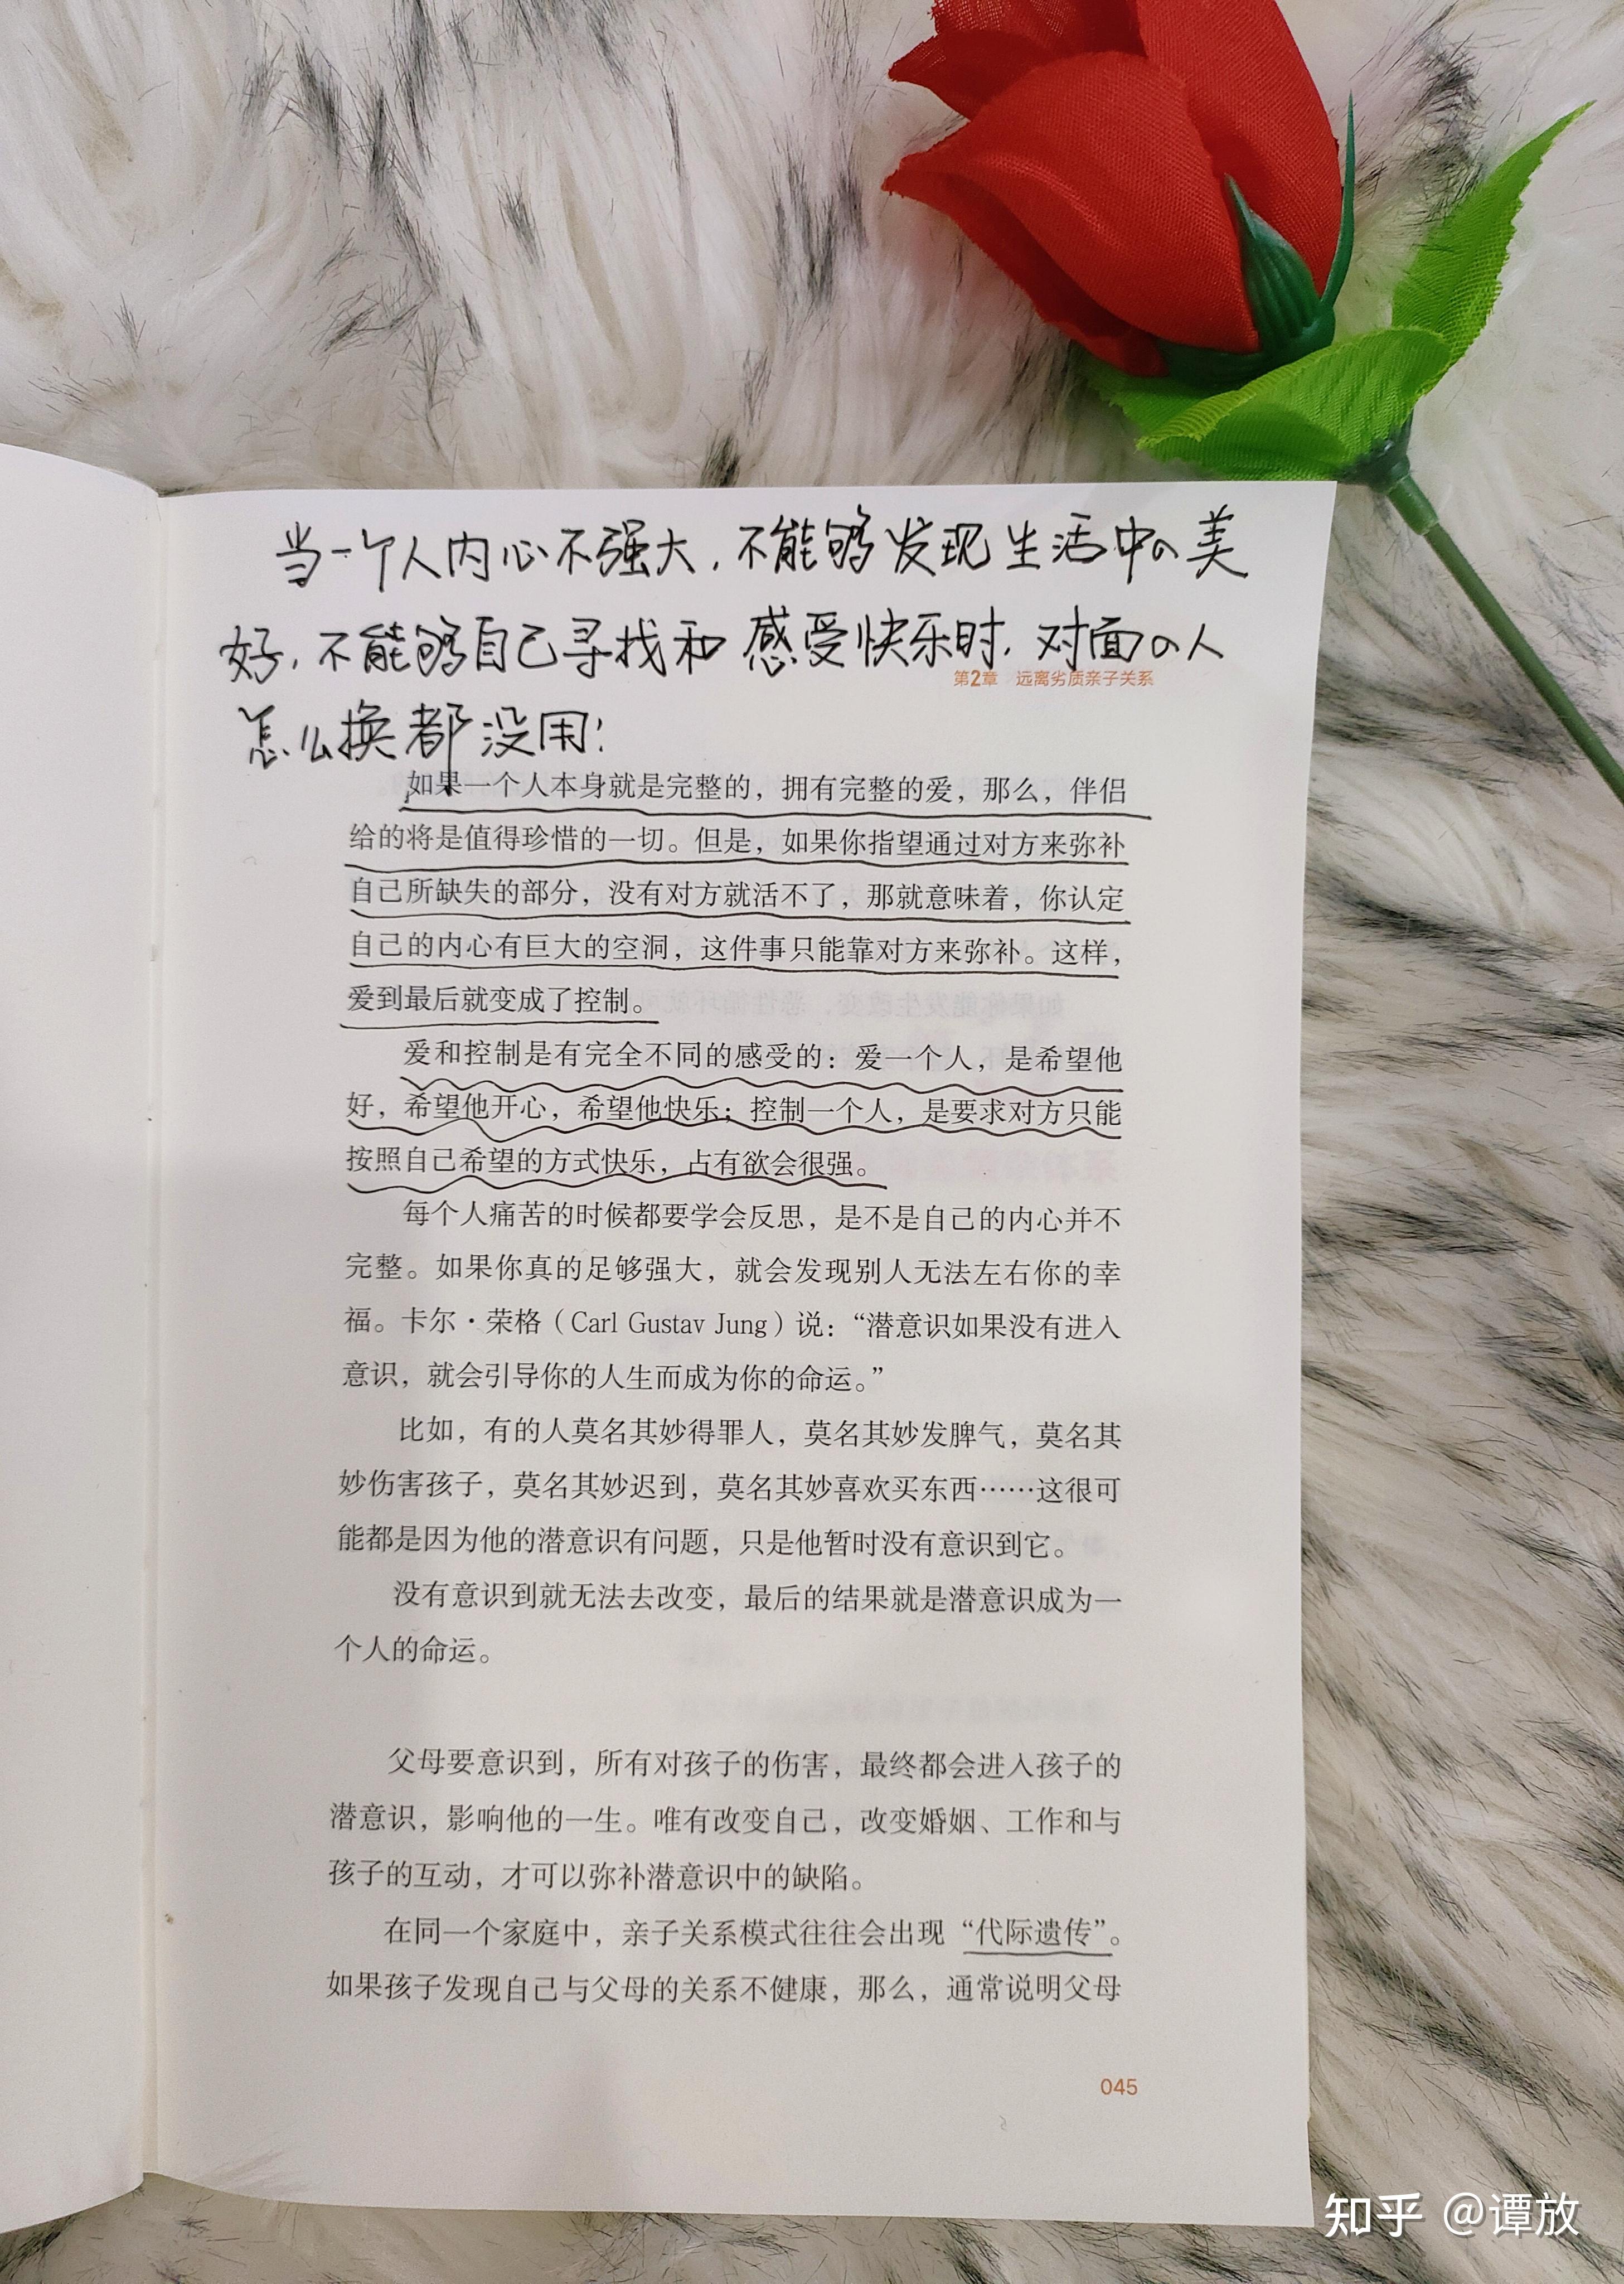 当一个人内心不强大，不能够发现生活中的美
好，不能够自己寻找和感受快乐时，对面的人
第2章 远离劣质亲子关系
怎么换都没用！
如果一个人本身就是完整的，拥有完整的爱，那么，伴侣
给的将是值得珍惜的一切。但是，如果你指望通过对方来弥补
自己所缺失的部分，没有对方就活不了，那就意味着，你认定
自己的内心有巨大的空洞，这件事只能靠对方来弥补。这样，
爱到最后就变成了控制。
爱和控制是有完全不同的感受的：爱一个人，是希望他
好，希望他开心，希望他快乐；控制一个人，是要求对方只能
按照自己希望的方式快乐，占有欲会很强。
每个人痛苦的时候都要学会反思，是不是自己的内心并不
完整。如果你真的足够强大，就会发现别人无法左右你的幸
福。卡尔·荣格（Carl Gustav Jung）说：“潜意识如果没有进入
意识，就会引导你的人生而成为你的命运。”
比如，有的人莫名其妙得罪人，莫名其妙发脾气，莫名其
妙伤害孩子，莫名其妙迟到，莫名其妙喜欢买东西……这很可
能都是因为他的潜意识有问题，只是他暂时没有意识到它。
没有意识到就无法去改变，最后的结果就是潜意识成为一
个人的命运。
父母要意识到，所有对孩子的伤害，最终都会进入孩子的
潜意识，影响他的一生。唯有改变自己，改变婚姻、工作和与
孩子的互动，才可以弥补潜意识中的缺陷。
在同一个家庭中，亲子关系模式往往会出现“代际遗传”。
如果孩子发现自己与父母的关系不健康，那么，通常说明父母
045
知乎 @谭放